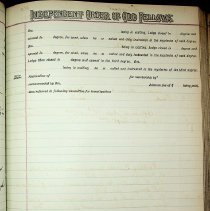 INDEPENDENT ORDER OF ODD FELLOWS.
Bro. being in waiting, Lodge closed in degree and
opened in degree, for work, when he was called and duly instructed in the mysteries of said degree.
Bro. being in waiting, Lodge closed in degree and
opened in degree, for work, when he was called and duly instructed in the mysteries of said degree.
Lodge then closed in degree and opened in the third degree. Bro.
being in waiting, he was called and instructed in the mysteries of the third degree.
Application of for membership
recommended by Bro. Amount fee of $ being paid,
was referred to following Committee for investigation: